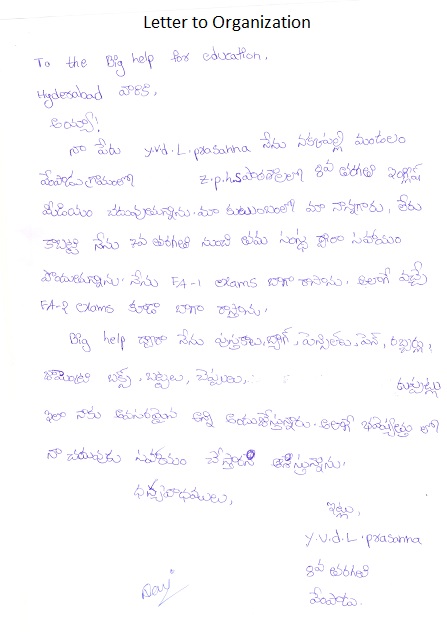 Letter to Organization
To the Big help for education,
Hyderabad వారికి,
అయ్యా!
నా పేరు y.v.d.L.prasanna నేను నక్కపల్లి మండలం
వేంపాడు గ్రామంలో z.p.h.s పాఠశాలలో 8వ తరగతి ఇంగ్లీష్
మీడియం చదువుతున్నాను. మా కుటుంబంలో మా నాన్నగారు, లేరు
కాబట్టి నేను 7వ తరగతి నుంచి తమ సంస్థ ద్వారా సహాయం
పొందుతున్నాను. నేను FA-1 exams బాగా రాసాను. అలాగే వచ్చే
FA-2 exams కూడా బాగా రాస్తాను.
Big help ద్వారా నేను పుస్తకాలు, బ్యాగ్, పెన్సిల్లు, పెన్, రబ్బర్లు,
జామెంట్రి బక్స్, బట్టలు, చెప్పులు, దుప్పట్లు
ఇలా నాకు అవసరమైన అన్ని అందుజేస్తున్నారు. అలాగే భవిష్యత్తు లో
నా చదువుకు సహాయం చేస్తారని ఆశిస్తున్నాను.
ధన్యవాదములు,
ఇట్లు,
y.v.d.L.prasanna
8వ తరగతి
వేంపాడు.